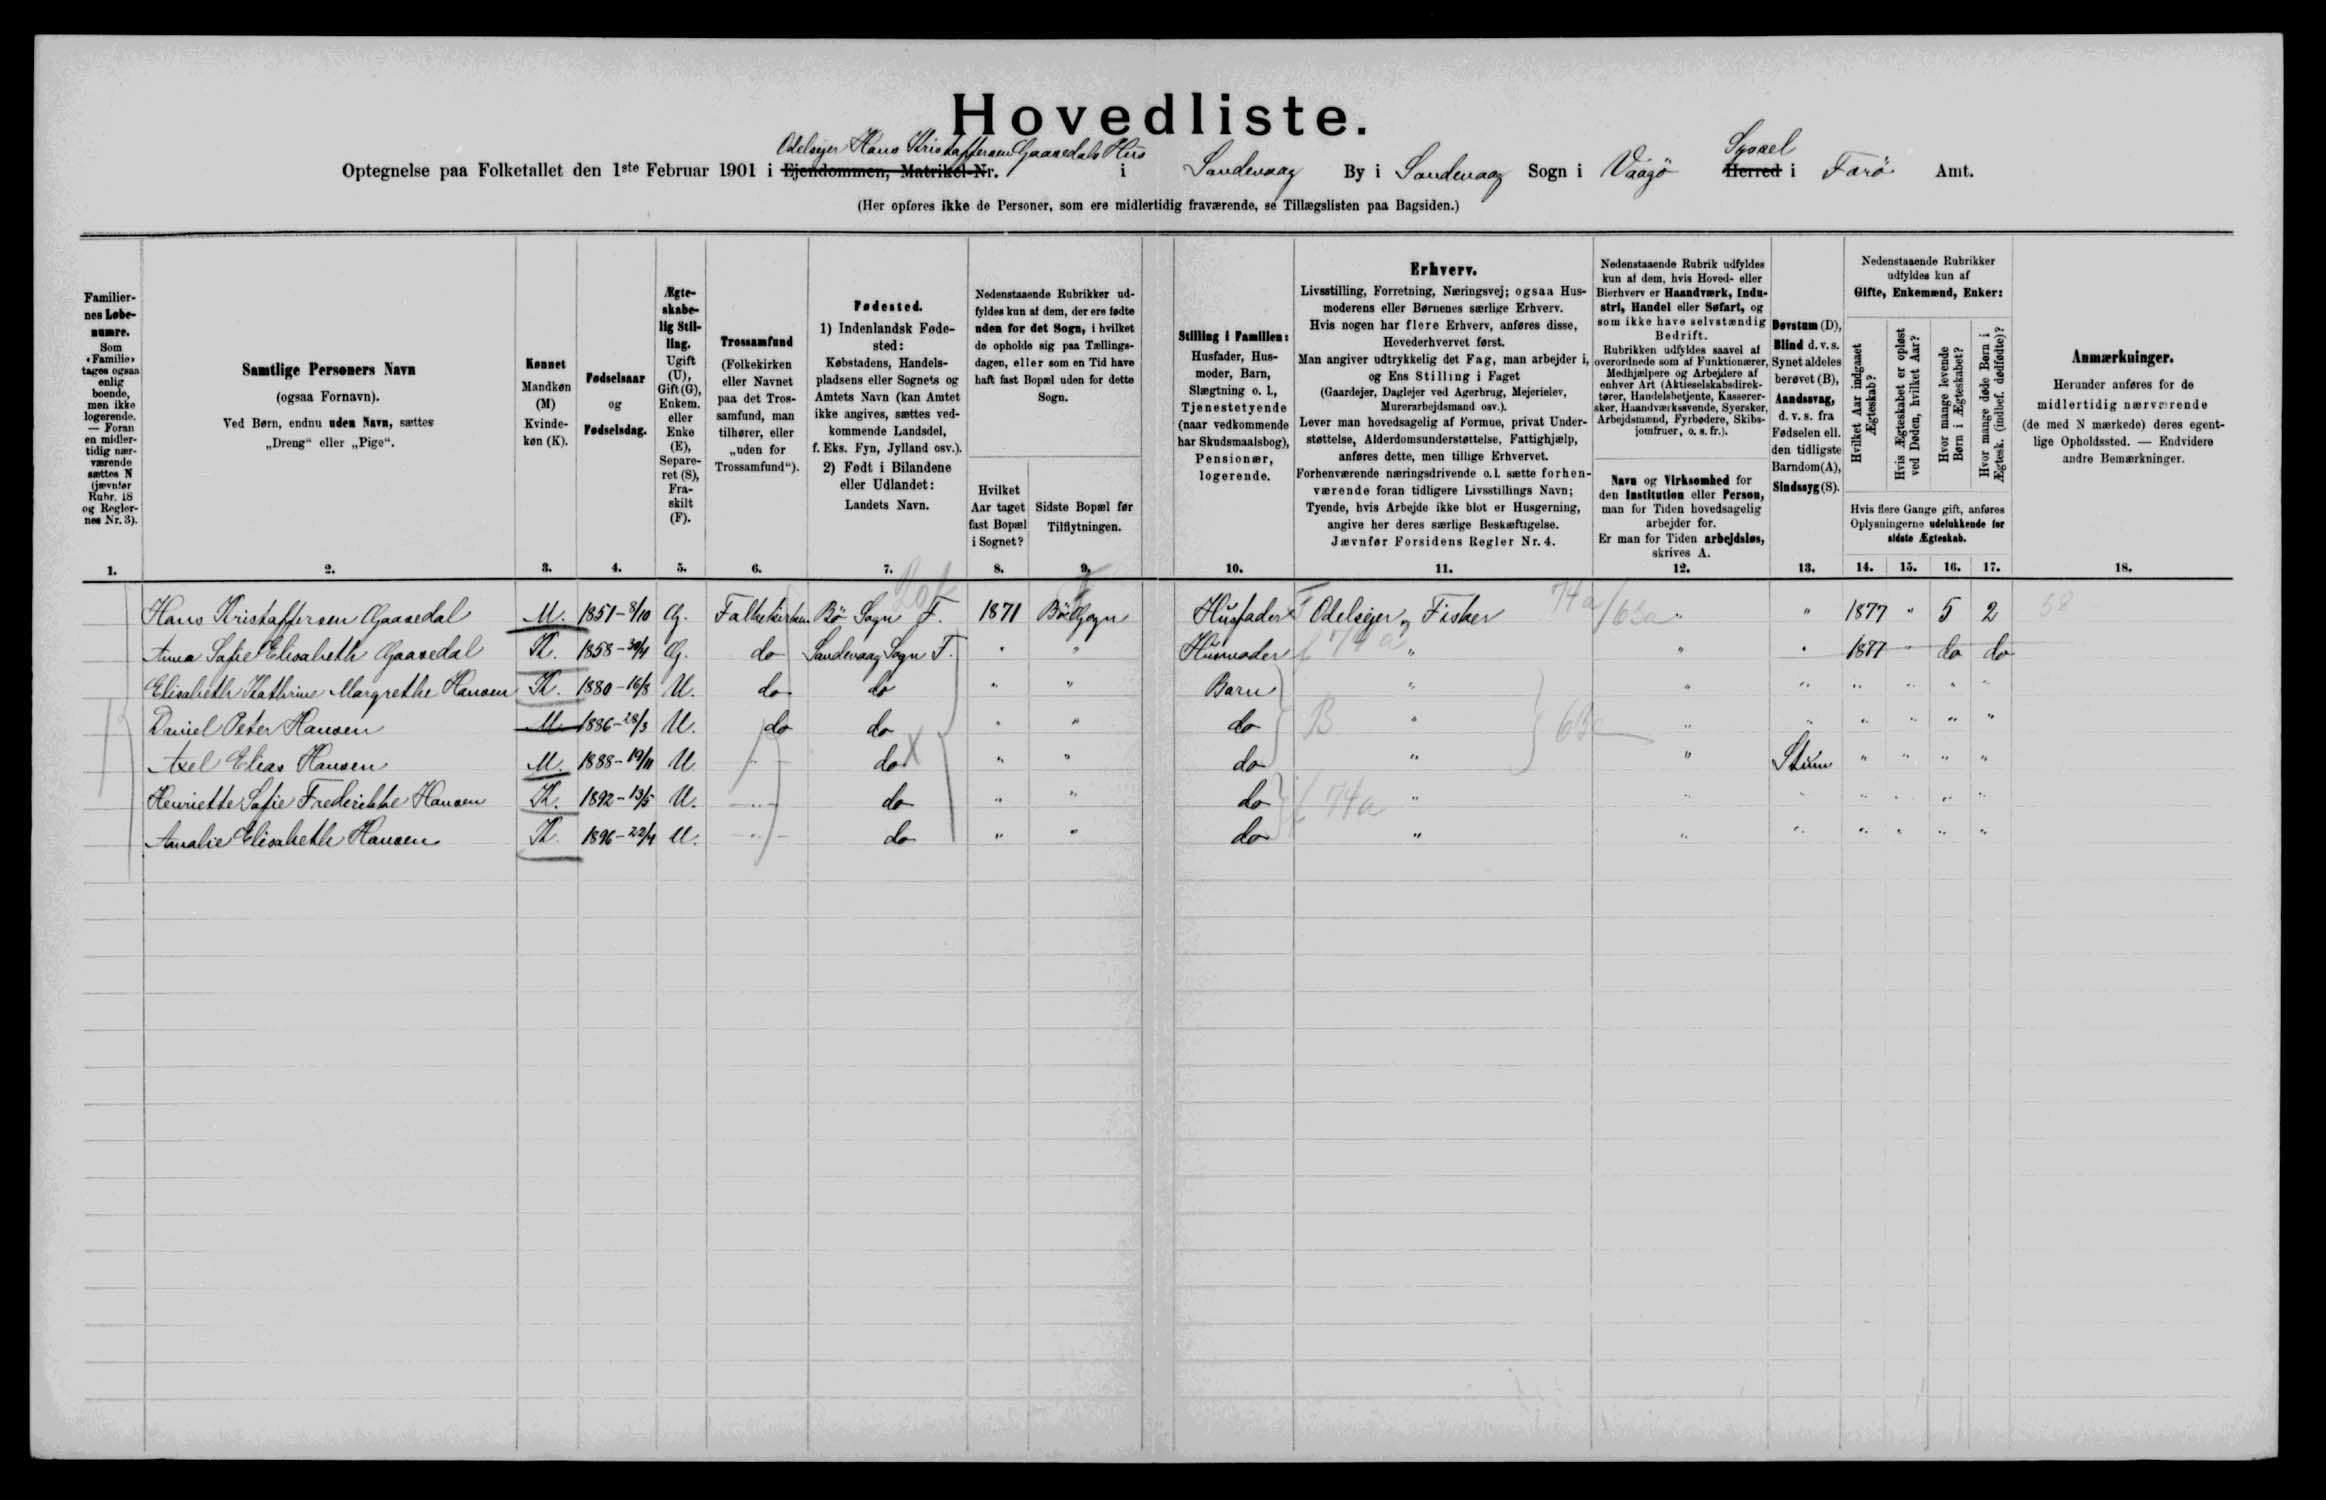 Hovedliste.
Odelsejer Hans Kristaffersen Gaasedals Hus Syssel
Optegnelse paa Folketallet den 1ste Februar 1901 i Ejendommen, Matrikel-Nr. i Sandevaag By i Sandevaag Sogn i Vaagö Herred i Færö Amt.
(Her opføres ikke de Personer, som ere midlertidig fraværende, se Tillægslisten paa Bagsiden.)
Familier-
nes Løbe-
numre.
Som
«Familie»
tages ogsaa
enlig
boende,
men ikke
logerende.
— Foran
en midler-
tidig nær-
værende
sættes N
(jævnfør
Rubr. 18
og Regler-
nes Nr. 3).
1.
Samtlige Personers Navn
(ogsaa Fornavn).
Ved Børn, endnu uden Navn, sættes
„Dreng“ eller „Pige“.
2.
Kønnet
Mandkøn
(M)
Kvinde-
køn (K).
3.
Fødselsaar
og
Fødselsdag.
4.
Ægte-
skabe-
lig Stil-
ling.
Ugift
(U),
Gift (G),
Enkem.
eller
Enke
(E),
Separe-
ret (S),
Fra-
skilt
(F).
5.
Trossamfund
(Folkekirken
eller Navnet
paa det Tros-
samfund, man
tilhører, eller
„uden for
Trossamfund“).
6.
Fødested.
1) Indenlandsk Føde-
sted:
Købstadens, Handels-
pladsens eller Sognets og
Amtets Navn (kan Amtet
ikke angives, sættes ved-
kommende Landsdel,
f. Eks. Fyn, Jylland osv.).
2) Født i Bilandene
eller Udlandet:
Landets Navn.
7.
Nedenstaaende Rubrikker ud-
fyldes kun af dem, der ere fødte
uden for det Sogn, i hvilket
de opholde sig paa Tællings-
dagen, eller som en Tid have
haft fast Bopæl uden for dette
Sogn.
Hvilket
Aar taget
fast Bopæl
i Sognet?
8.
Sidste Bopæl før
Tilflytningen.
9.
Stilling i Familien:
Husfader, Hus-
moder, Barn,
Slægtning o. l.,
Tjenestetyende
(naar vedkommende
har Skudsmaalsbog),
Pensionær,
logerende.
10.
Erhverv.
Livsstilling, Forretning, Næringsvej; ogsaa Hus-
moderens eller Børnenes særlige Erhverv.
Hvis nogen har flere Erhverv, anføres disse,
Hovederhvervet først.
Man angiver udtrykkelig det Fag, man arbejder i,
og Ens Stilling i Faget
(Gaardejer, Daglejer ved Agerbrug, Mejerielev,
Murerarbejdsmand osv.).
Lever man hovedsagelig af Formue, privat Under-
støttelse, Alderdomsunderstøttelse, Fattighjælp,
anføres dette, men tillige Erhvervet.
Forhenværende næringsdrivende o. l. sætte forhen-
værende foran tidligere Livsstillings Navn;
Tyende, hvis Arbejde ikke blot er Husgerning,
angive her deres særlige Beskæftigelse.
Jævnfør Forsidens Regler Nr. 4.
11.
Nedenstaaende Rubrik udfyldes
kun af dem, hvis Hoved- eller
Bierhverv er Haandværk, Indu-
stri, Handel eller Søfart, og
som ikke have selvstændig
Bedrift.
Rubrikken udfyldes saavel af
overordnede som af Funktionærer,
Medhjælpere og Arbejdere af
enhver Art (Aktieselskabsdirek-
tører, Handelsbetjente, Kasserer-
sker, Haandværkssvende, Syersker,
Arbejdsmænd, Fyrbødere, Skibs-
jomfruer, o. s. fr.).
Navn og Virksomhed for
den Institution eller Person,
man for Tiden hovedsagelig
arbejder for.
Er man for Tiden arbejdsløs,
skrives A.
12.
Døvstum (D),
Blind d. v. s.
Synet aldeles
berøvet (B),
Aandssvag,
d. v. s. fra
Fødselen ell.
den tidligste
Barndom (A),
Sindssyg (S).
13.
Nedenstaaende Rubrikker
udfyldes kun af
Gifte, Enkemænd, Enker:
Hvilket Aar indgaaet
Ægteskab?
Hvis Ægteskabet er opløst
ved Døden, hvilket Aar?
Hvor mange levende
Børn i Ægteskabet?
Hvor mange døde Børn i
Ægtesk. (indbef. dødfødte)?
Hvis flere Gange gift, anføres
Oplysningerne udelukkende for
sidste Ægteskab.
14. 15. 16. 17.
Anmærkninger.
Herunder anføres for de
midlertidig nærværende
(de med N mærkede) deres egent-
lige Opholdssted. — Endvidere
andre Bemærkninger.
18.
Hans Kristaffersen Gaasedal M. 1851-8/10 G. Falkekirken Bö Sogn F. 1871 Bö Sogn Husfader T Odelsejer og Fisker 74a/63a " " 1877 " 5 2 58
Anna Safie Elisabeth Gaasedal K. 1858-30/4 G. do Sandevaag Sogn F. " " Husmoder f 74a " " " 1877 " do do
Elisabeth Kathrine Margrethe Hansen K. 1880-16/8 U. do do " " Barn " " " " " " "
Daniel Peter Hansen M. 1886-28/3 U. do do " " do B " " " " " " "
Axel Elias Hansen M. 1888-19/11 U. " do X " " do " " Stum " " " "
Henriette Safie Frederikke Hansen K. 1892-13/5 U. " do " " do f 74a " " " " " " "
Amalie Elisabeth Hansen K. 1896-22/4 U. " do " " do " " " " " " "